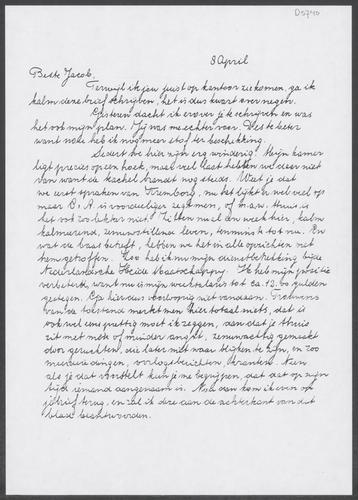 D5740
8 April
Beste Jacob,
Terwijl ik jou, juist op kantoor zie komen, ga ik
kalm deze brief schrijven, het is dus kwart over negen.
Gisteren dacht ik erover je te schrijven en was
het ook mijn plan. Jij was me echter voor. Des te beter
want nou heb ik nog meer stof ter beschikking.
Sedert be hier zijn erg winderig! Mijn kamer
ligt precies op een hoek, maar veel last hebben we daar niet
van want de kachel brandt nog steeds. Wat je dat
we eerst spraken van Tremborg, nu het lijkt er wel veel op
maar B. A. is voordeliger zeg men, of m.a.w. thuis is
het ook zo lekker niet! Zitten nu al ons werk hier, kalm
kalmerend, zenuwstillend leven, tenminste tot nu. En
wat de baas betreft, hebben we het in alle opzichten net
hem getroffen. Zoo heb ik nu mijn dienstbetrekking bij de
Nederlandsche Heide Maatschappij. Ik heb mijn positie
verbeterd, want nu is mijn weekgelas tot ca. 13.50 gulden
gestegen. En hier dus voorloopig niet vandaan. Trouwens
van de toestand merkt men hier totaal niets, dat is
ook wel eens prettig moet ik zeggen, dan dat je thuis
zit met meer of minder angst, zenuwachtig gemaakt
door geruchten, die later niet waar blijken te zijn, en zoo
meer dingen, oorlogsberichten kranten. Neen
als je dat vertelt kun je me begrijpen, dat dat op mijn
tijd iemand aangenaam is. Nou dan kom ik even op
je brief terug, en zal ik deze aan de achterkant van dit
blad beantwoorden.